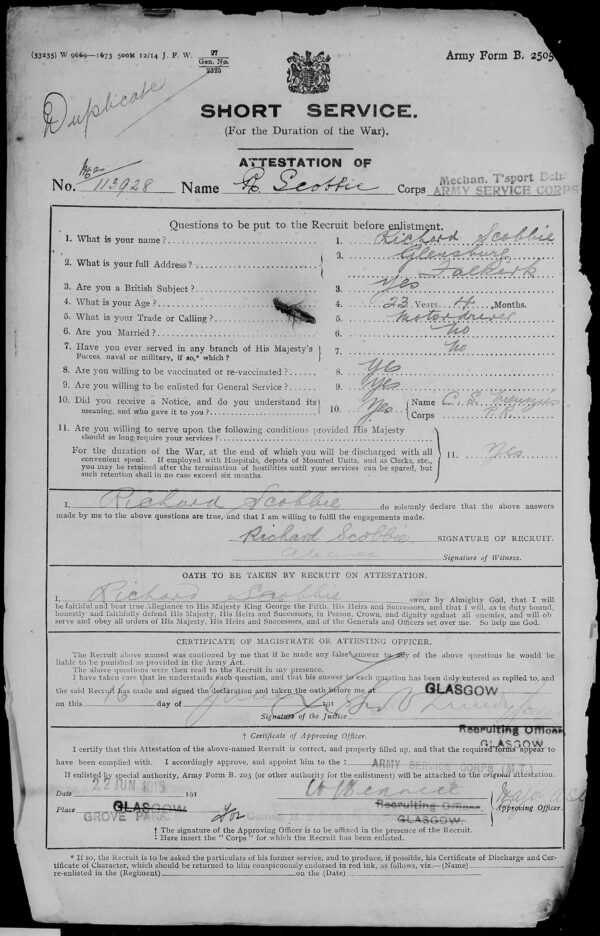 (33235) W 9669—1673 500M 12/14 J. F. W. 27
Gen. No.
2525
Army Form B. 2505
Duplicate
SHORT SERVICE.
(For the Duration of the War).
ATTESTATION OF
No. M2/113928 Name R. Scobbie Corps Mechan. T'sport
ARMY SERVICE CORPS
Questions to be put to the Recruit before enlistment.
1. What is your name? 1. Richard Scobbie
2. What is your full Address? 2. Glensburgh
Falkirk
3. Are you a British Subject? 3. Yes
4. What is your Age? 4. 23 Years 4 Months.
5. What is your Trade or Calling? 5. Motor driver
6. Are you Married? 6. No
7. Have you ever served in any branch of His Majesty's
Forces, naval or military, if so,* which? 7. No
8. Are you willing to be vaccinated or re-vaccinated? 8. Yes
9. Are you willing to be enlisted for General Service? 9. Yes
10. Did you receive a Notice, and do you understand its
meaning, and who gave it to you? 10. Yes Name C. S. Menzies
Corps
11. Are you willing to serve upon the following conditions provided His Majesty
should so long require your services?
For the duration of the War, at the end of which you will be discharged with all
convenient speed. If employed with Hospitals, depots of Mounted Units, and as Clerks, etc.,
you may be retained after the termination of hostilities until your services can be spared, but
such retention shall in no case exceed six months. 11. Yes
I, Richard Scobbie do solemnly declare that the above answers
made by me to the above questions are true, and that I am willing to fulfil the engagements made.
Richard Scobbie SIGNATURE OF RECRUIT.
Signature of Witness.
OATH TO BE TAKEN BY RECRUIT ON ATTESTATION.
I, Richard Scobbie swear by Almighty God, that I will
be faithful and bear true Allegiance to His Majesty King George the Fifth, His Heirs and Successors, and that I will, as in duty bound,
honestly and faithfully defend His Majesty, His Heirs and Successors, in Person, Crown, and dignity against all enemies, and will ob
serve and obey all orders of His Majesty, His Heirs and Successors, and of the Generals and Officers set over me. So help me God.
CERTIFICATE OF MAGISTRATE OR ATTESTING OFFICER.
The Recruit above named was cautioned by me that if he made any false answer to any of the above questions he would be
liable to be punished as provided in the Army Act.
The above questions were then read to the Recruit in my presence.
I have taken care that he understands each question, and that his answer to each question has been duly entered as replied to, and
the said Recruit has made and signed the declaration and taken the oath before me at GLASGOW
on this 16 day of June 191
Signature of the Justice
Recruiting Officer
GLASGOW
† Certificate of Approving Officer.
I certify that this Attestation of the above-named Recruit is correct, and properly filled up, and that the required forms appear to
have been complied with. I accordingly approve, and appoint him to the ‡ ARMY SERVICE CORPS (M.T.)
If enlisted by special authority, Army Form B. 203 (or other authority for the enlistment) will be attached to the original attestation.
Date 22 JUN 1915 191
Place GLASGOW Recruiting Officer Approving Officer.
GROVE PARK for GLASGOW
† The signature of the Approving Officer is to be affixed in the presence of the Recruit.
‡ Here insert the "Corps" for which the Recruit has been enlisted.
* If so, the Recruit is to be asked the particulars of his former service, and to produce, if possible, his Certificate of Discharge and Cer-
tificate of Character, which should be returned to him conspicuously endorsed in red ink, as follows, viz.—(Name)
re-enlisted in the (Regiment) on the (Date)